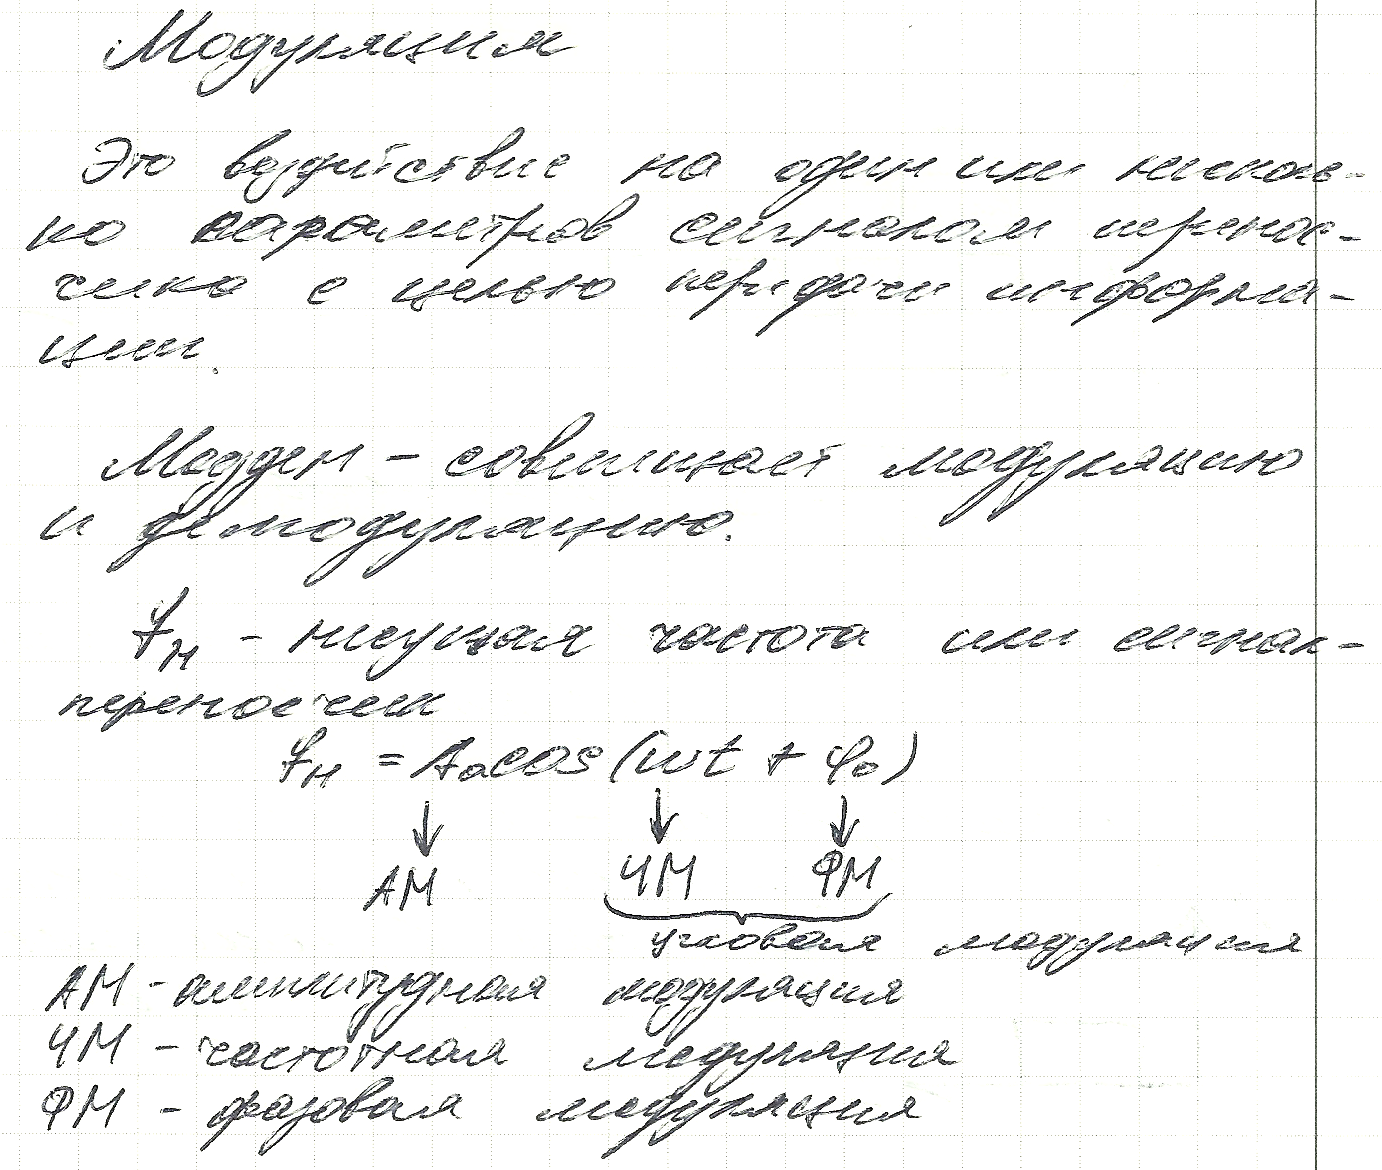 Модуляция
Это воздействие на один или несколь-
ко параметров сигналом перенос-
чика с целью передачи информа-
ции.
Модем - совмещает модуляцию
и демодуляцию.
fн - несущая частота или сигнал-
переносчик
fн = A₀cos(ωt + φ₀)
↓ ↓ ↓
АМ ЧМ ФМ
угловая модуляция
АМ - амплитудная модуляция
ЧМ - частотная модуляция
ФМ - фазовая модуляция